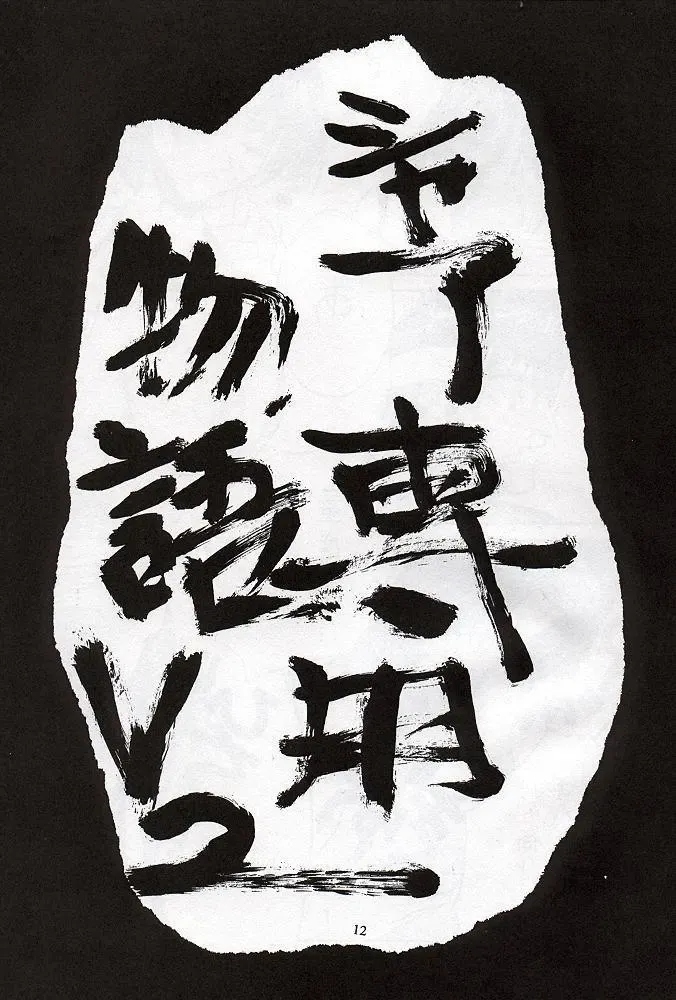 シャア専用
物語
V2
12